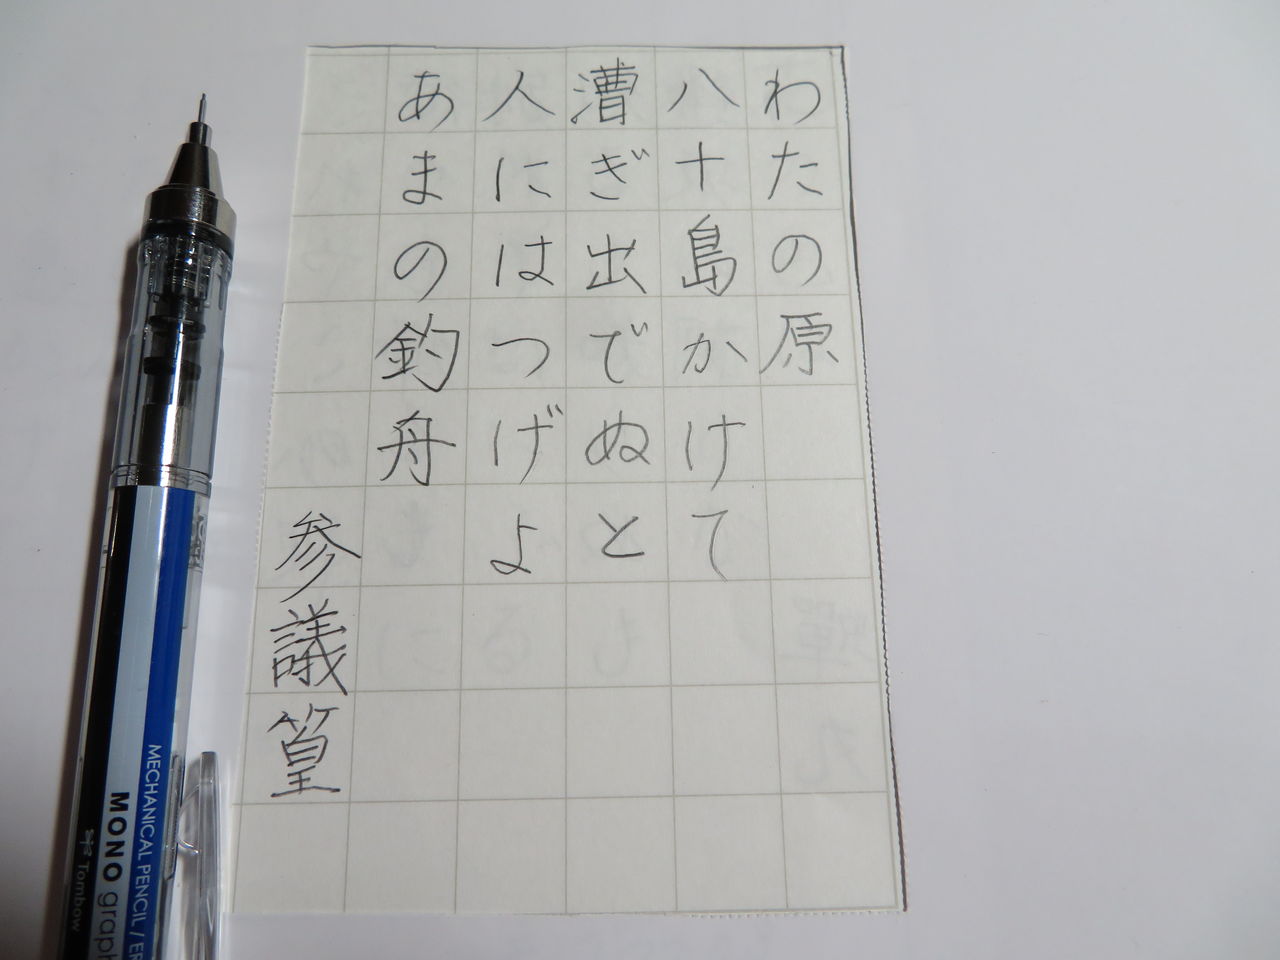 わたの原
八十島かけて
漕ぎ出でぬと
人にはつげよ
あまの釣舟
参議篁
MECHANICAL PENCIL / ER
MONO graph
Tombow